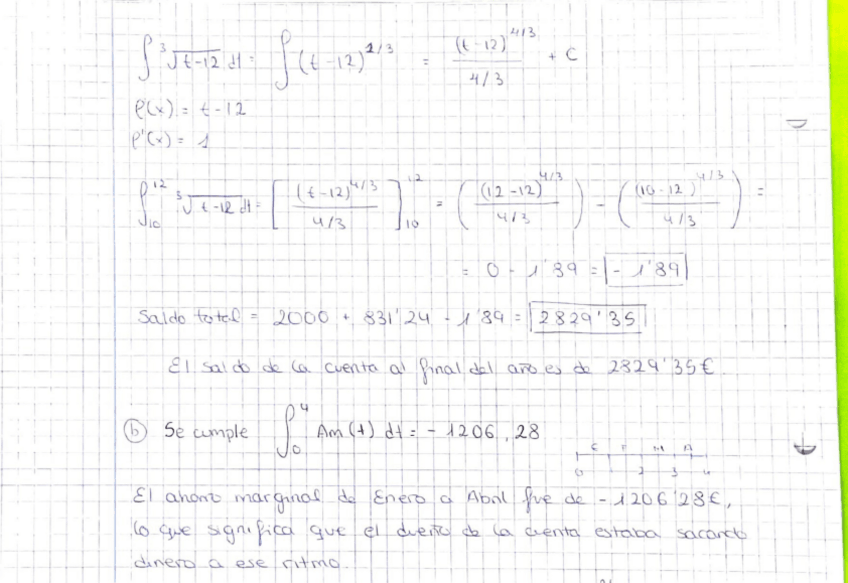 ∫ ³√t-12 dt = ∫ (t-12)^1/3 = (t-12)^4/3 / 4/3 + C
φ(x) = t-12
φ'(x) = 1
∫₁₀¹² ³√t-12 dt = [(t-12)^4/3 / 4/3]₁₀¹² = ((12-12)^4/3 / 4/3) - ((10-12)^4/3 / 4/3) =
= 0 - 1'89 = -1'89
Saldo total = 2000 + 831'24 - 1'89 = 2829'35
El saldo de la cuenta al final del año es de 2829'35€
b Se cumple ∫₀⁴ Am(t) dt = -1206,28
E F M A
0 2 3 4
El ahorro marginal de Enero a Abril fue de -1206'28€,
lo que significa que el dueño de la cuenta estaba sacando
dinero a ese ritmo.